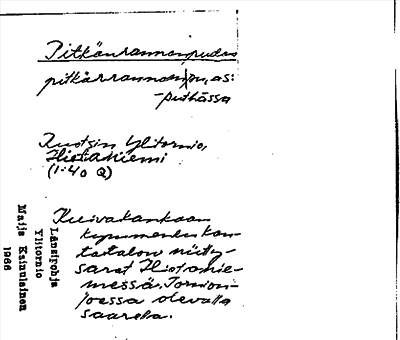 Pitkänrannanpudas
pitkärrannan, as:
-puthāssa
Ruotsin Ylitornio,
Hietaniemi
(1:40 Q)
Kuivakankaan
kymmenen kan-
tatalon niitty-
sarat Hietanie-
messä. Tornion-
joessa olevalla
saarella.
Länsipohja
Ylitornio
Maija Kainulainen
1966